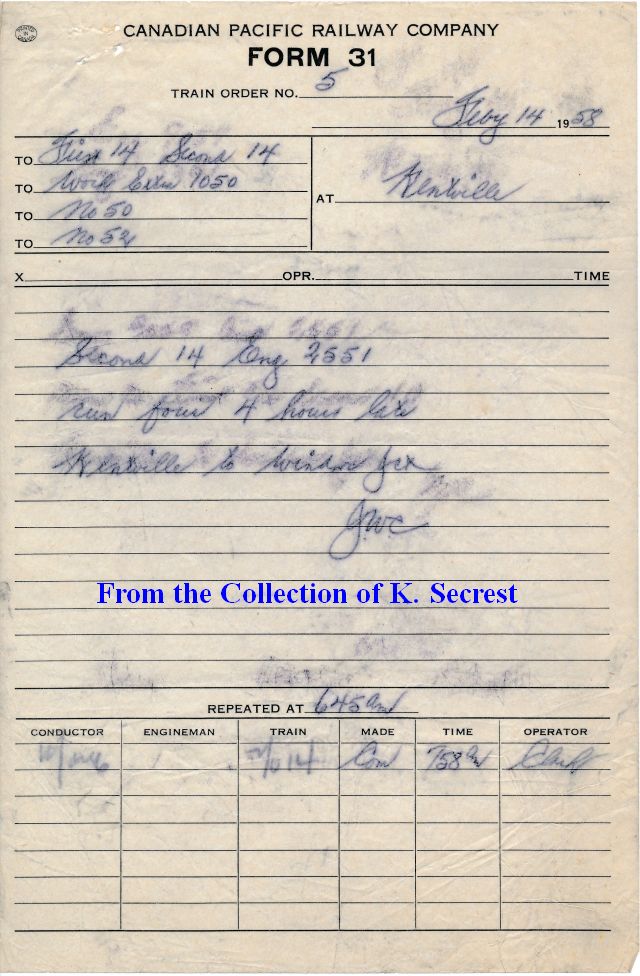 PRINTED IN CANADA
CANADIAN PACIFIC RAILWAY COMPANY
FORM 31
TRAIN ORDER NO. 5
Feby 14 1958
TO First 14 Second 14
TO Work Extra 1050
TO No 50
TO No 52
AT Kentville
X OPR. TIME
Second 14 Eng 2551
run four 4 hours late
Kentville to Windsor Jct
JWC
From the Collection of K. Secrest
REPEATED AT 645 am
CONDUCTOR ENGINEMAN TRAIN MADE TIME OPERATOR
14 Com 758 am